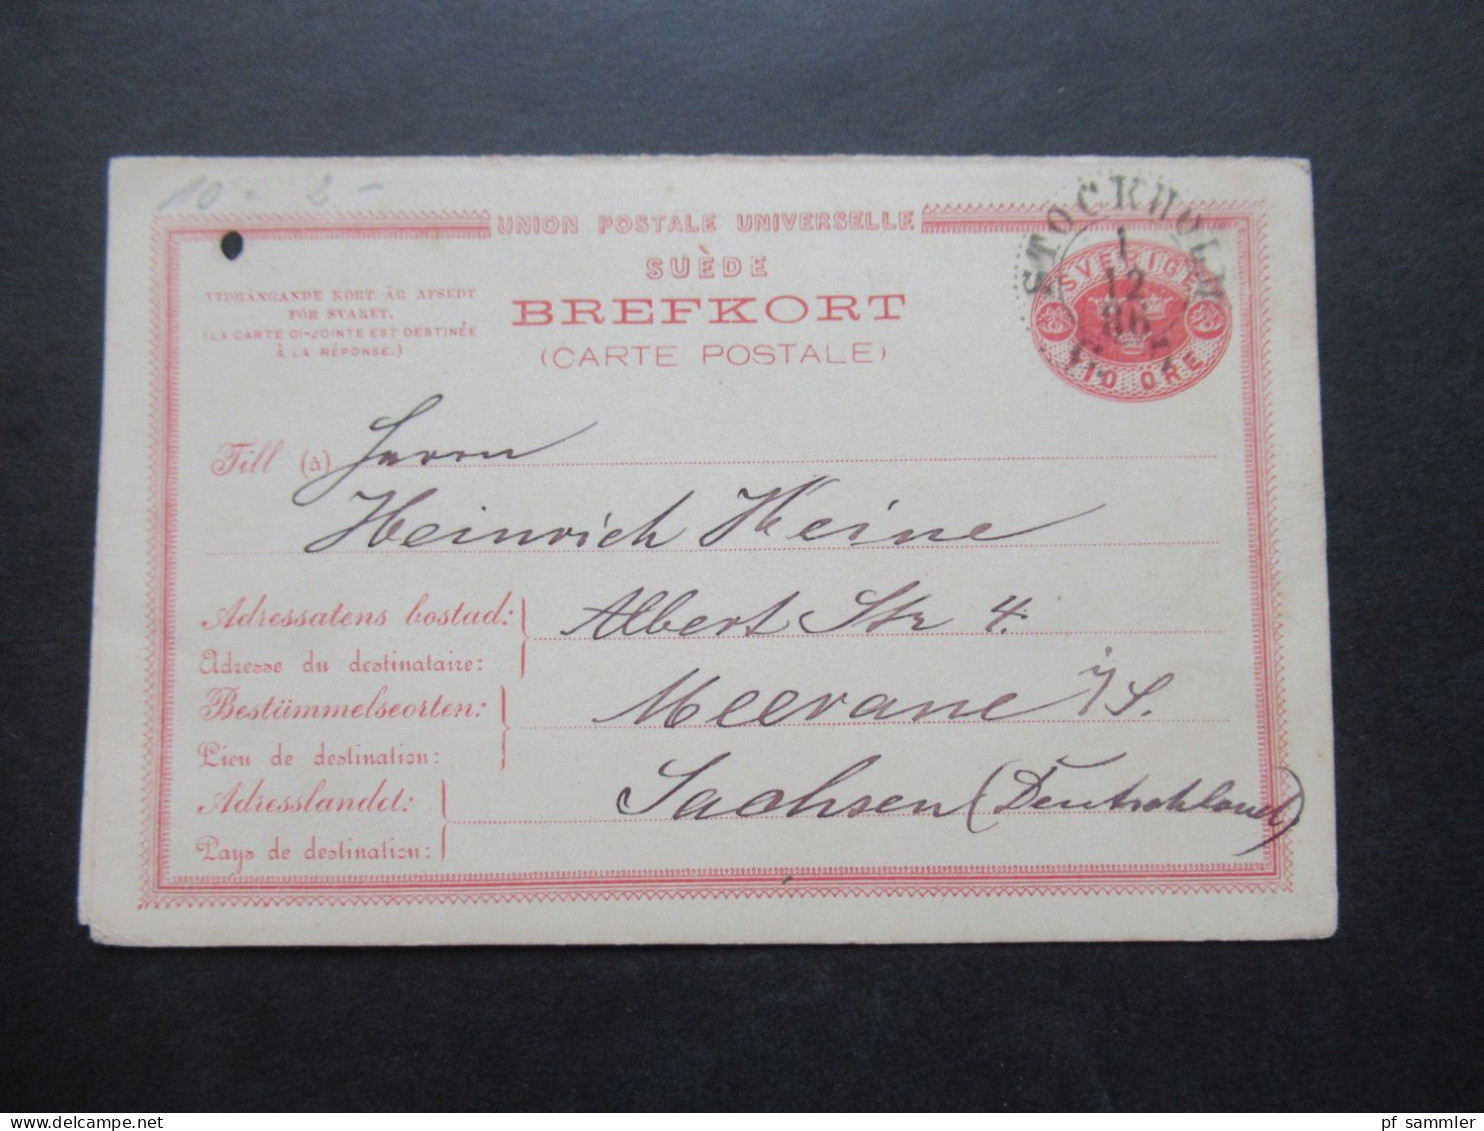 10 - 2 -
UNION POSTALE UNIVERSELLE
SUÈDE
BREFKORT
(CARTE POSTALE)
VIDHÄNGANDE KORT ÄR AFSEDT
FÖR SVARET.
(LA CARTE CI-JOINTE EST DESTINÉE
À LA RÉPONSE.)
STOCKHOLM
1
12
86
SVERIGE
TIO ÖRE
Till (à) Herrn
Heinrich Heine
Adressatens bostad:
Albert Str 4.
Adresse du destinataire:
Bestämmelseorten:
Meerane i/S.
Lieu de destination:
Adresslandet:
Sachsen (Deutschland)
Pays de destination:
pf sammler